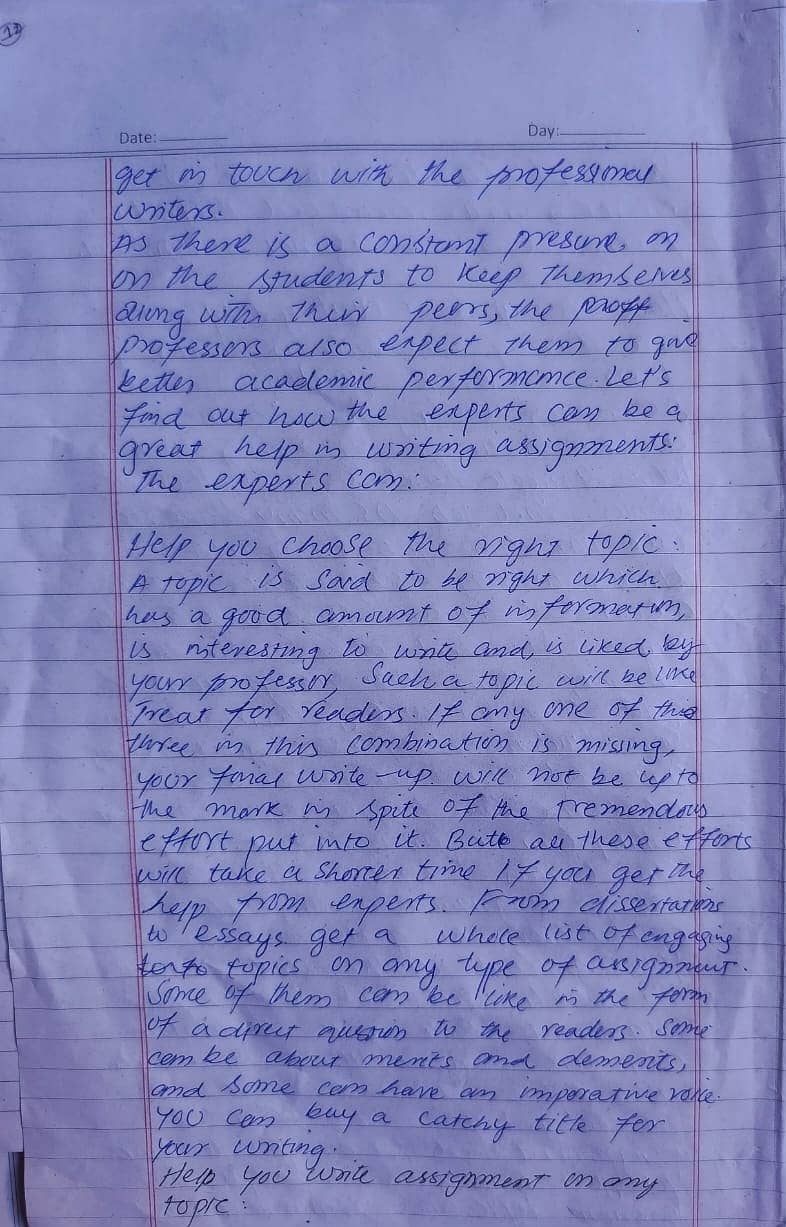 13
Date: Day:
get in touch with the professional
writers.
As there is a constant presure, on
on the students to keep themselves
along with their peers, the proff
professors also expect them to give
better academic performance. Let's
find out how the experts can be a
great help in writing assignments:
The experts can:
Help you choose the right topic:
A topic is said to be right which
has a good amount of information,
is interesting to write and, is liked by
your professor, Such a topic will be like
Treat for readers. If any one of this
three in this combination is missing,
your final write-up will not be up to
the mark in spite of the tremendous
effort put into it. But all these efforts
will take a shorter time if you get the
help from experts. From dissertations
to essays get a whole list of engaging
topics on any type of assignment.
Some of them can be like in the form
of a direct question to the readers. Some
can be about merits and demerits,
and some can have an imporative voice.
You can buy a catchy title for
your writing.
Help you write assignment on any
topic: